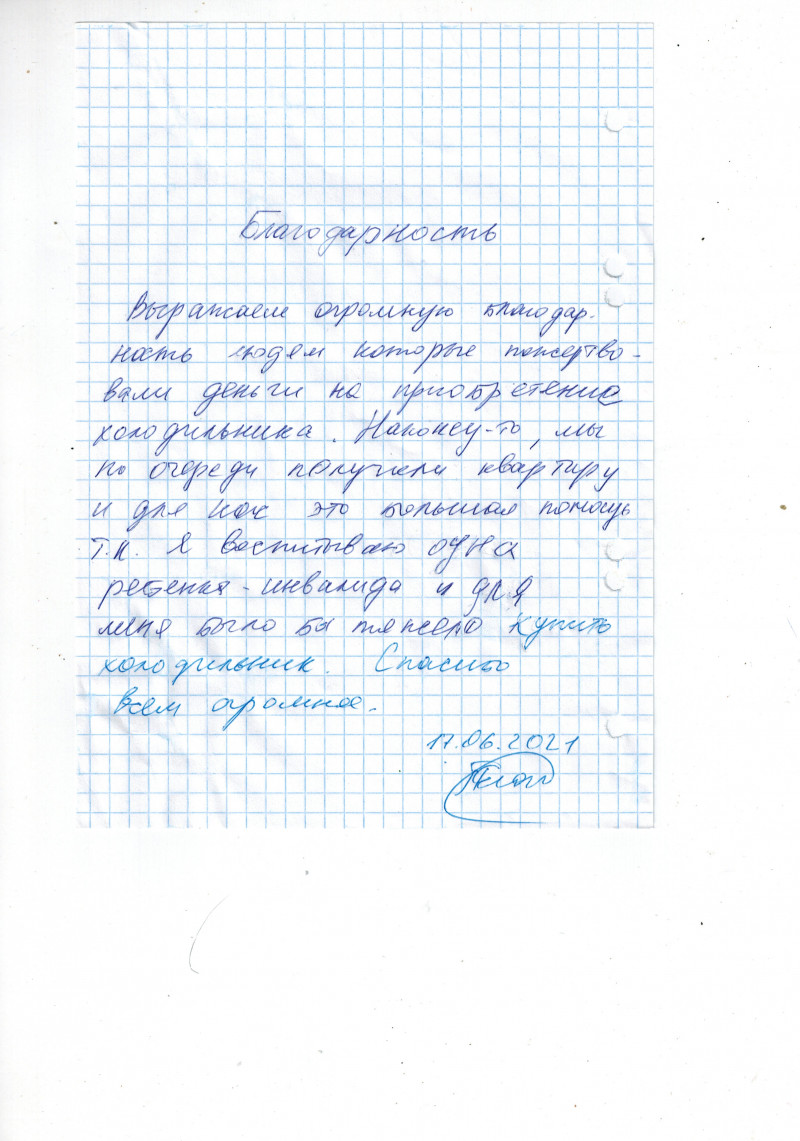 Благодарность
Выражаем огромную благодар-
ность людям которые пожертво-
вали деньги на приобретение
холодильника. Наконец-то, мы
по очереди получили квартиру
и для нас это большая помощь
т.к. я воспитываю одна
ребенка-инвалида и для
меня было бы тяжело купить
холодильник. Спасибо
всем огромное.
17.06.2021